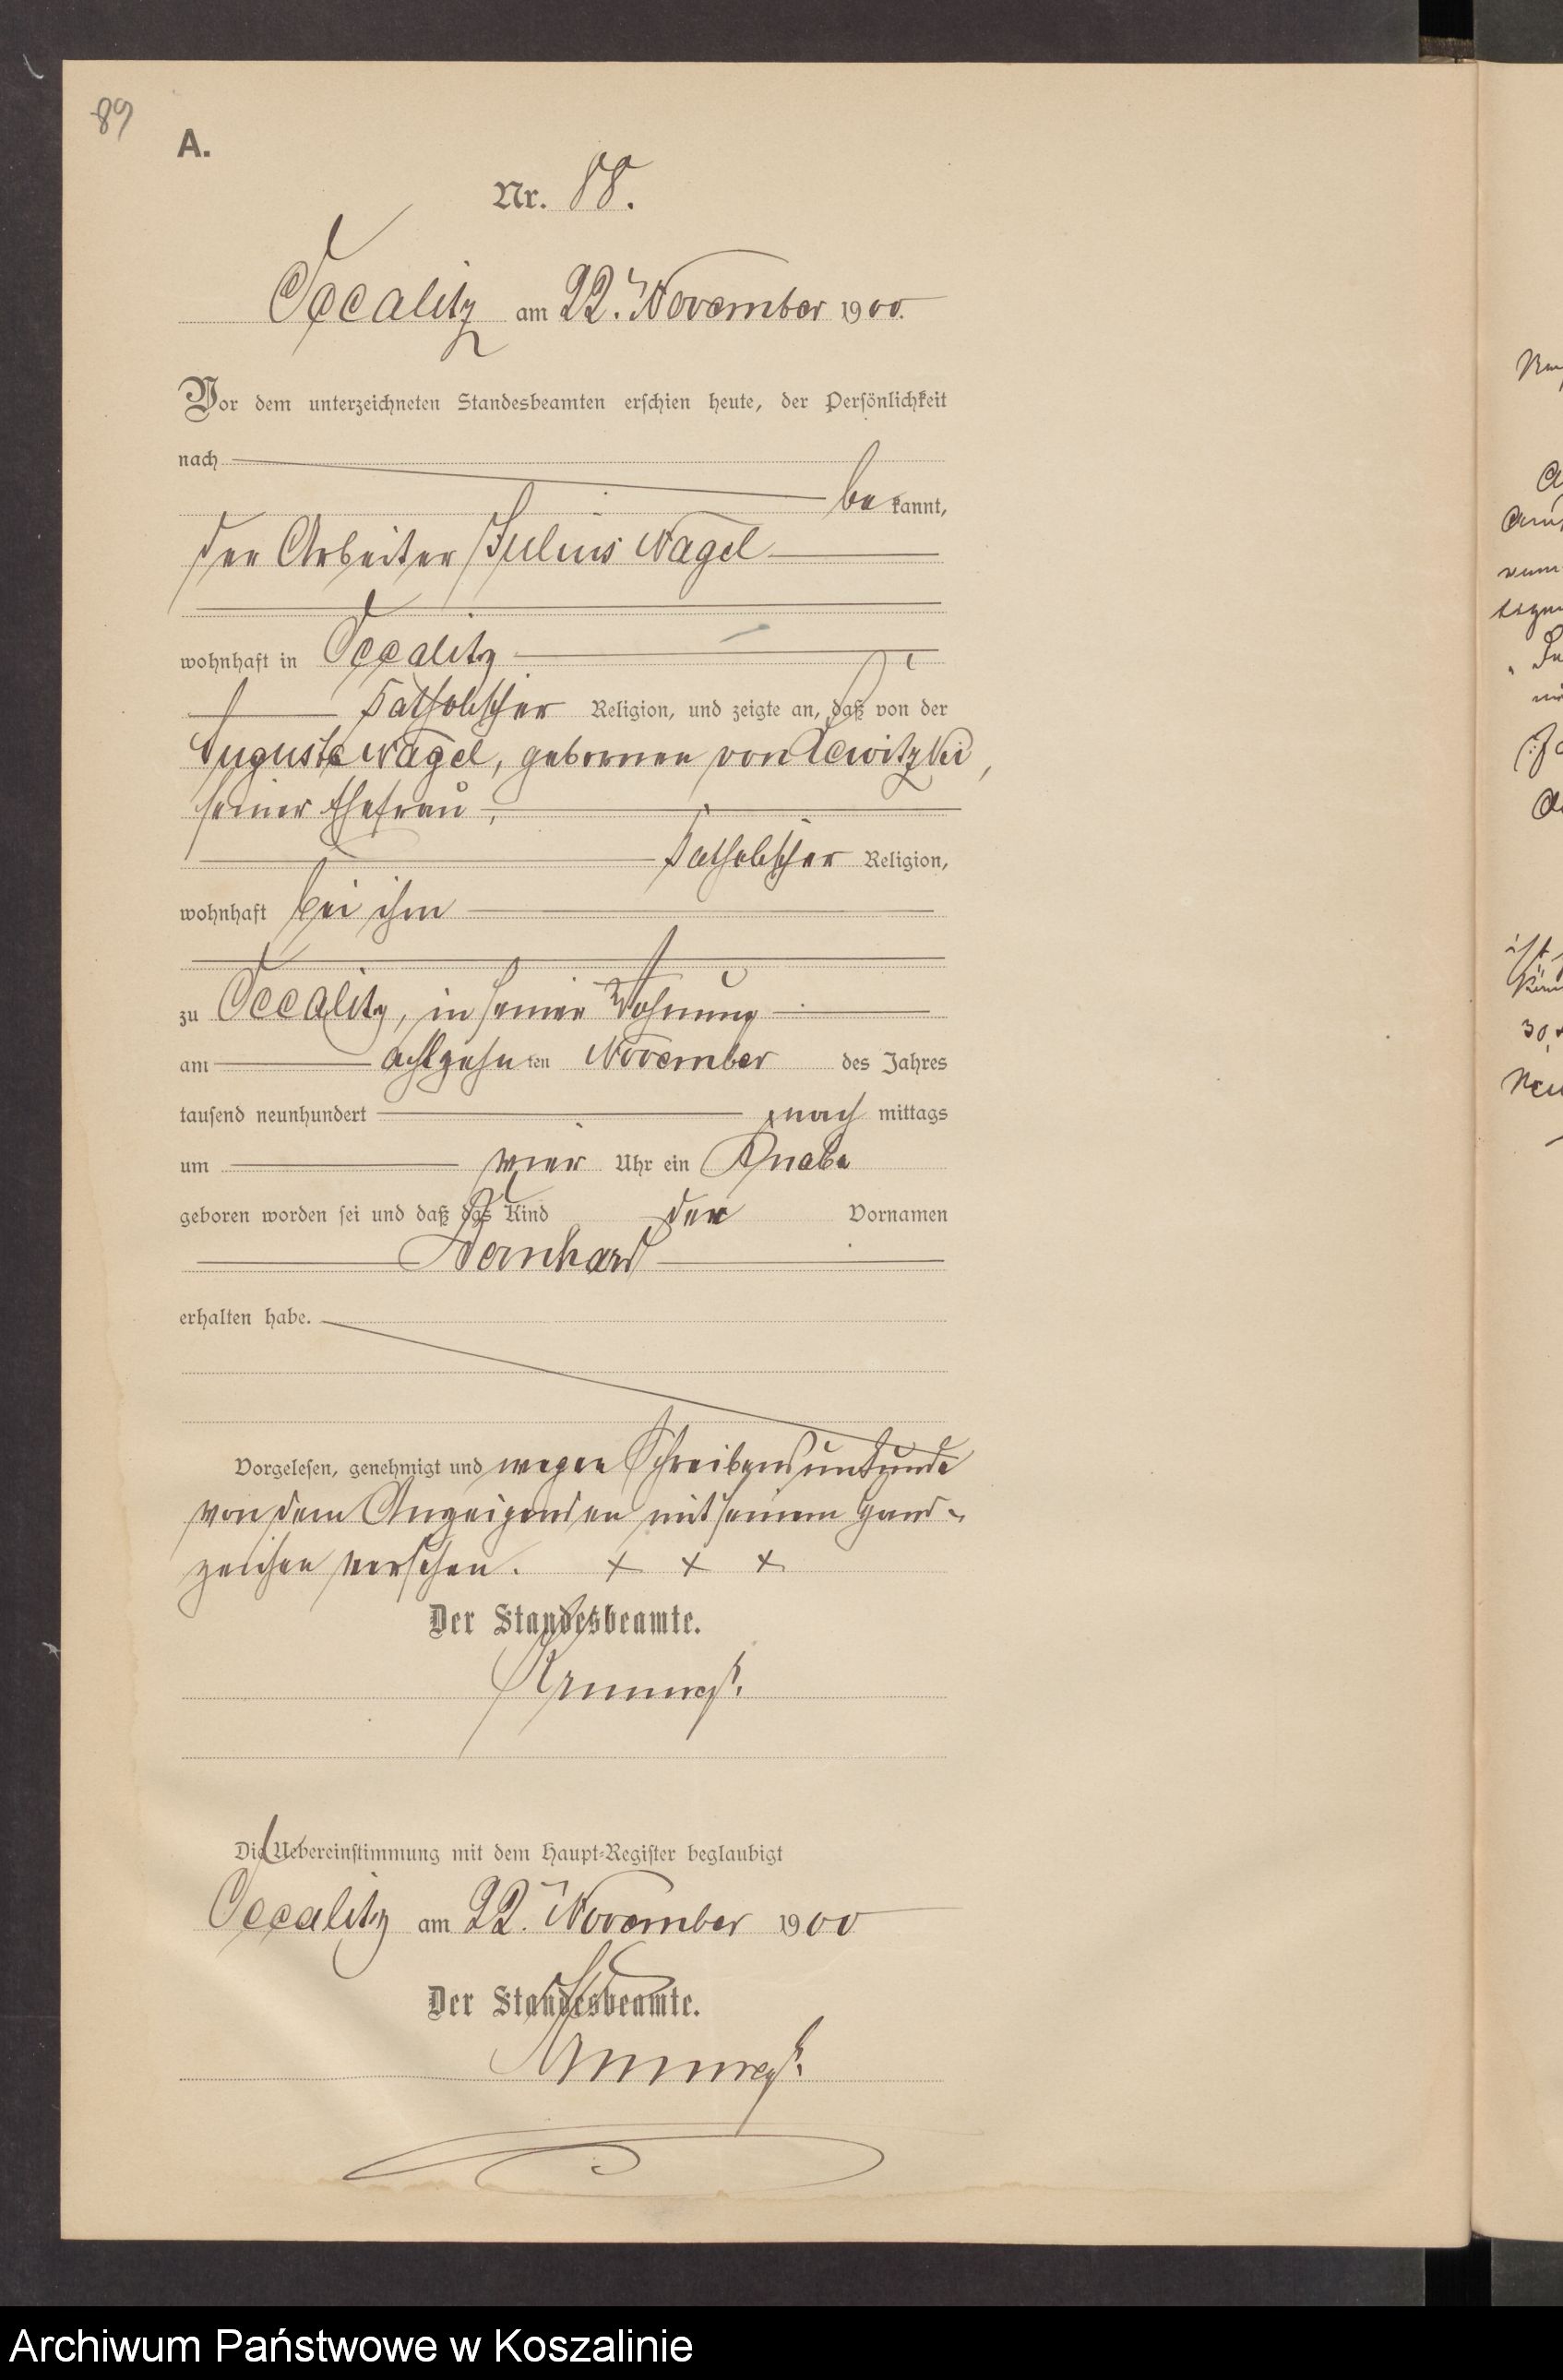 89
A.
Nr. 88.
Occalitz am 22. November 1900.
Vor dem unterzeichneten Standesbeamten erschien heute, der Persönlichkeit
nach
bekannt,
der Arbeiter Julius Nagel
wohnhaft in Occalitz
katholischer Religion, und zeigte an, daß von der
Auguste Nagel, geborenen von Lewitzki,
seiner Ehefrau,
katholischer Religion,
wohnhaft bei ihm
zu Occalitz, in seiner Wohnung
am achtzehnten November des Jahres
tausend neunhundert nachmittags
um vier Uhr ein Knabe
geboren worden sei und daß das Kind den Vornamen
Bernhard
erhalten habe.
Vorgelesen, genehmigt und wegen Schreibensunkunde
von dem Anzeigenden mit seinem Hand-
zeichen versehen. + + +
Der Standesbeamte.
Die Uebereinstimmung mit dem Haupt-Register beglaubigt
Occalitz am 22. November 1900
Der Standesbeamte.
Archiwum Państwowe w Koszalinie